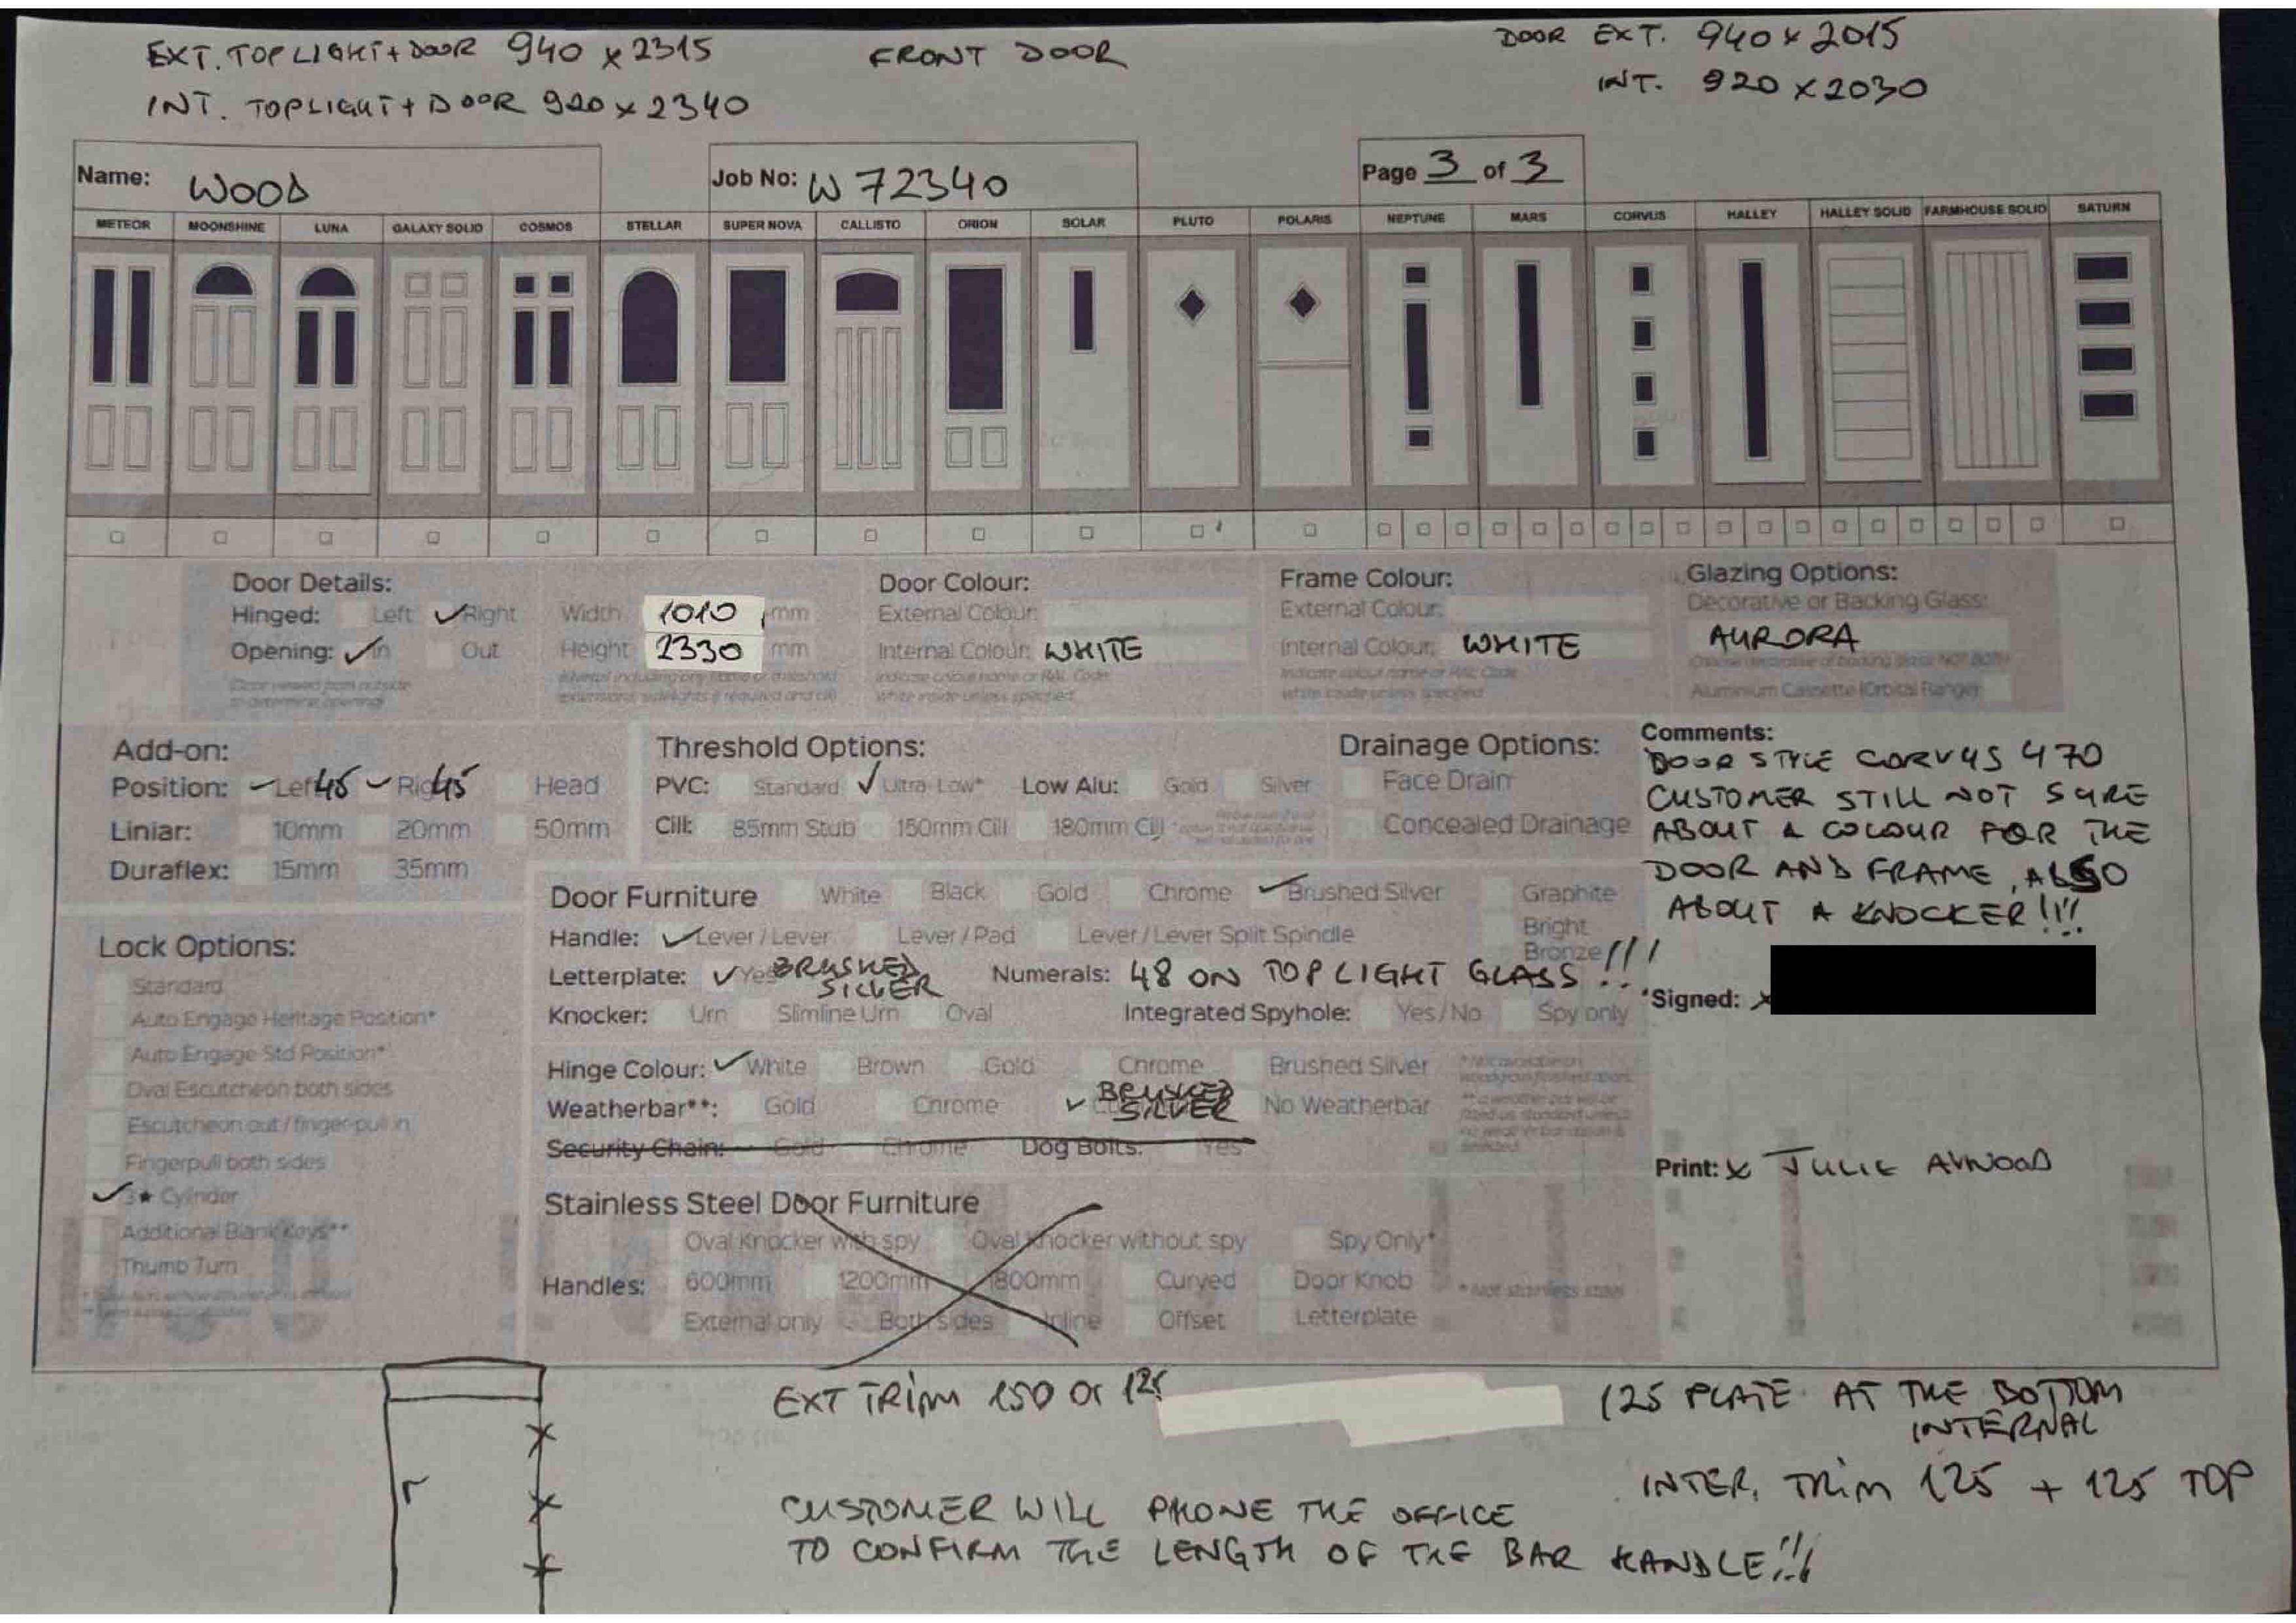 EXT. TOPLIGHT + DOOR 940 x 2315
FRONT DOOR
DOOR EXT. 940 x 2015
INT. TOPLIGHT + DOOR 920 x 2340
INT. 920 x 2030
Name: WOOD
Job No: W 72340
Page 3 of 3
METEOR MOONSHINE LUNA GALAXY SOLID COSMOS STELLAR SUPER NOVA CALLISTO ORION SOLAR PLUTO POLARIS NEPTUNE MARS CORVUS HALLEY HALLEY SOLID FARMHOUSE SOLID SATURN
Door Details:
Hinged: Left ✓ Right
Opening: ✓ In Out
(Door viewed from outside
to determine opening)
Width 1010 mm
Height 2330 mm
Door Colour:
External Colour:
Internal Colour: WHITE
Indicate colour name or RAL Code
White inside unless specified
Frame Colour:
External Colour:
Internal Colour: WHITE
Indicate colour name or RAL Code
White inside unless specified
Glazing Options:
Decorative or Backing Glass:
AURORA
Aluminium Cassette (Orbital Range)
Add-on:
Position: ✓ Left 45 ✓ Right 45 Head
Liniar: 10mm 20mm 50mm
Duraflex: 15mm 35mm
Threshold Options:
PVC: Standard ✓ Ultra-Low* Low Alu: Gold Silver
Cill: 85mm Stub 150mm Cill 180mm Cill
Drainage Options:
Face Drain
Concealed Drainage
Comments:
DOOR STYLE CORVUS 470
CUSTOMER STILL NOT SURE
ABOUT A COLOUR FOR THE
DOOR AND FRAME, ALSO
ABOUT A KNOCKER!!!
*Signed: x
Print: x JULIE
Lock Options:
Standard
Auto Engage Heritage Position*
Auto Engage Std Position*
Oval Escutcheon both sides
Escutcheon out / finger-pull in
Fingerpull both sides
✓ 3★ Cylinder
Additional Blank Keys**
Thumb Turn
Door Furniture White Black Gold Chrome ✓ Brushed Silver Graphite
Bright
Bronze
Handle: ✓ Lever / Lever Lever / Pad Lever / Lever Split Spindle
Letterplate: ✓ Yes BRUSHED SILVER Numerals: 48 ON TOP LIGHT GLASS!!!
Knocker: Urn Slimline Urn Oval Integrated Spyhole: Yes / No Spy only
Hinge Colour: ✓ White Brown Gold Chrome Brushed Silver
Weatherbar**: Gold Chrome ✓ BRUSHED SILVER No Weatherbar
Security Chain: Gold Chrome Dog Bolts: Yes
Stainless Steel Door Furniture
Oval Knocker with spy Oval Knocker without spy Spy Only*
Handles: 600mm 1200mm 1800mm Curved Door Knob
* Not stainless steel
External only Both sides Inline Offset Letterplate
EXT TRIM 150 or 125
125 PLATE AT THE BOTTOM
INTERNAL
INTER. TRIM 125 + 125 TOP
CUSTOMER WILL PHONE THE OFFICE
TO CONFIRM THE LENGTH OF THE BAR HANDLE!!!